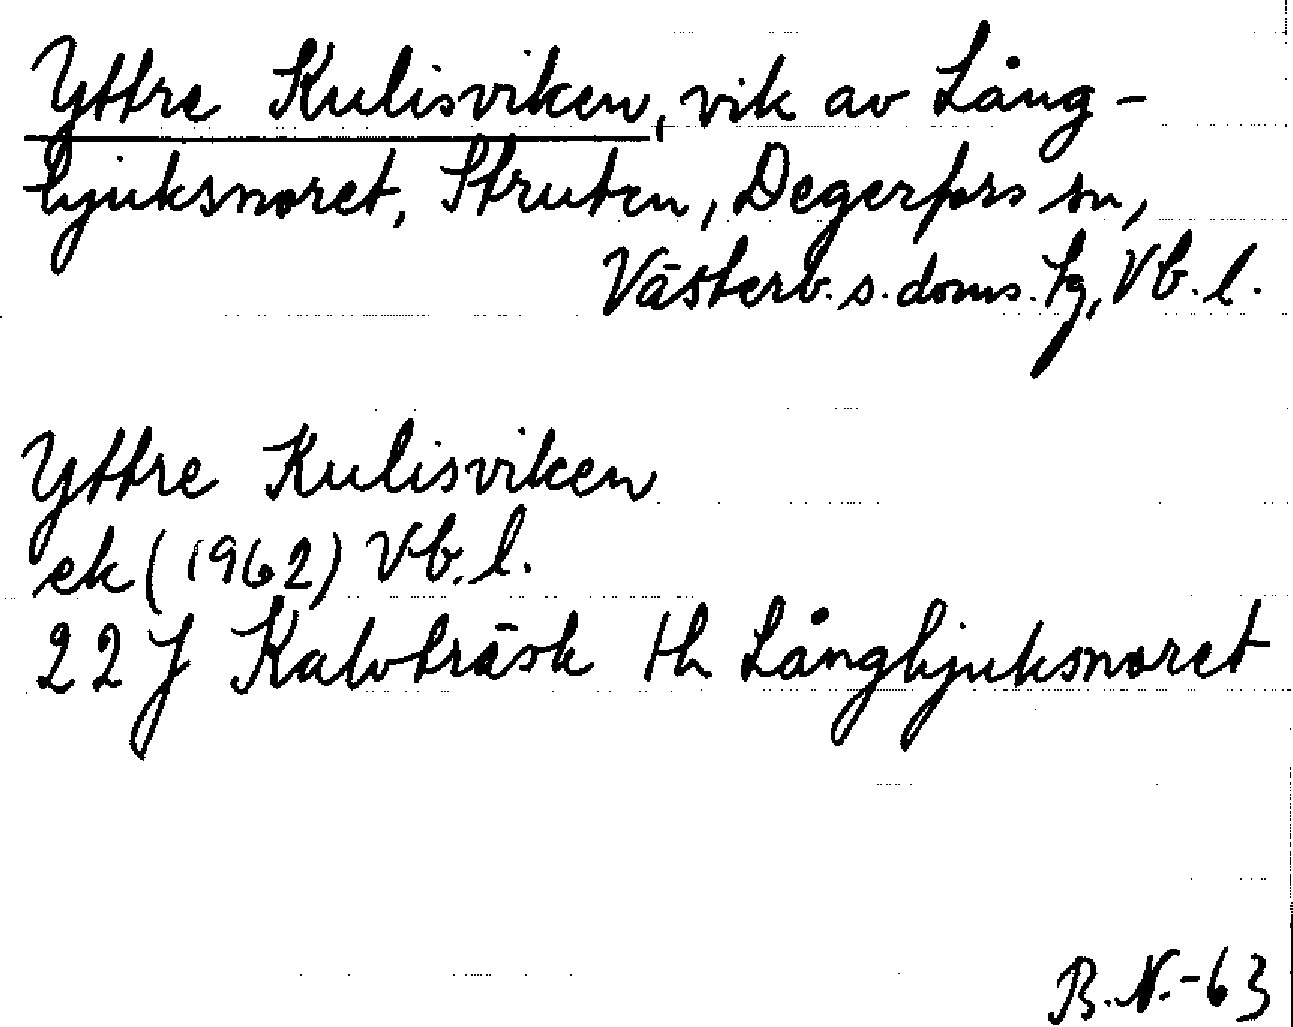 Yttre Kulisviken, vik av Lång-
bjuksnoret, Struten, Degerfors sn,
Västerb. s. doms. tg, Vb. l.
Yttre Kulisviken
ek (1962) Vb. l.
22 J Kalvträsk th Långbjuksnoret
B.N.-63